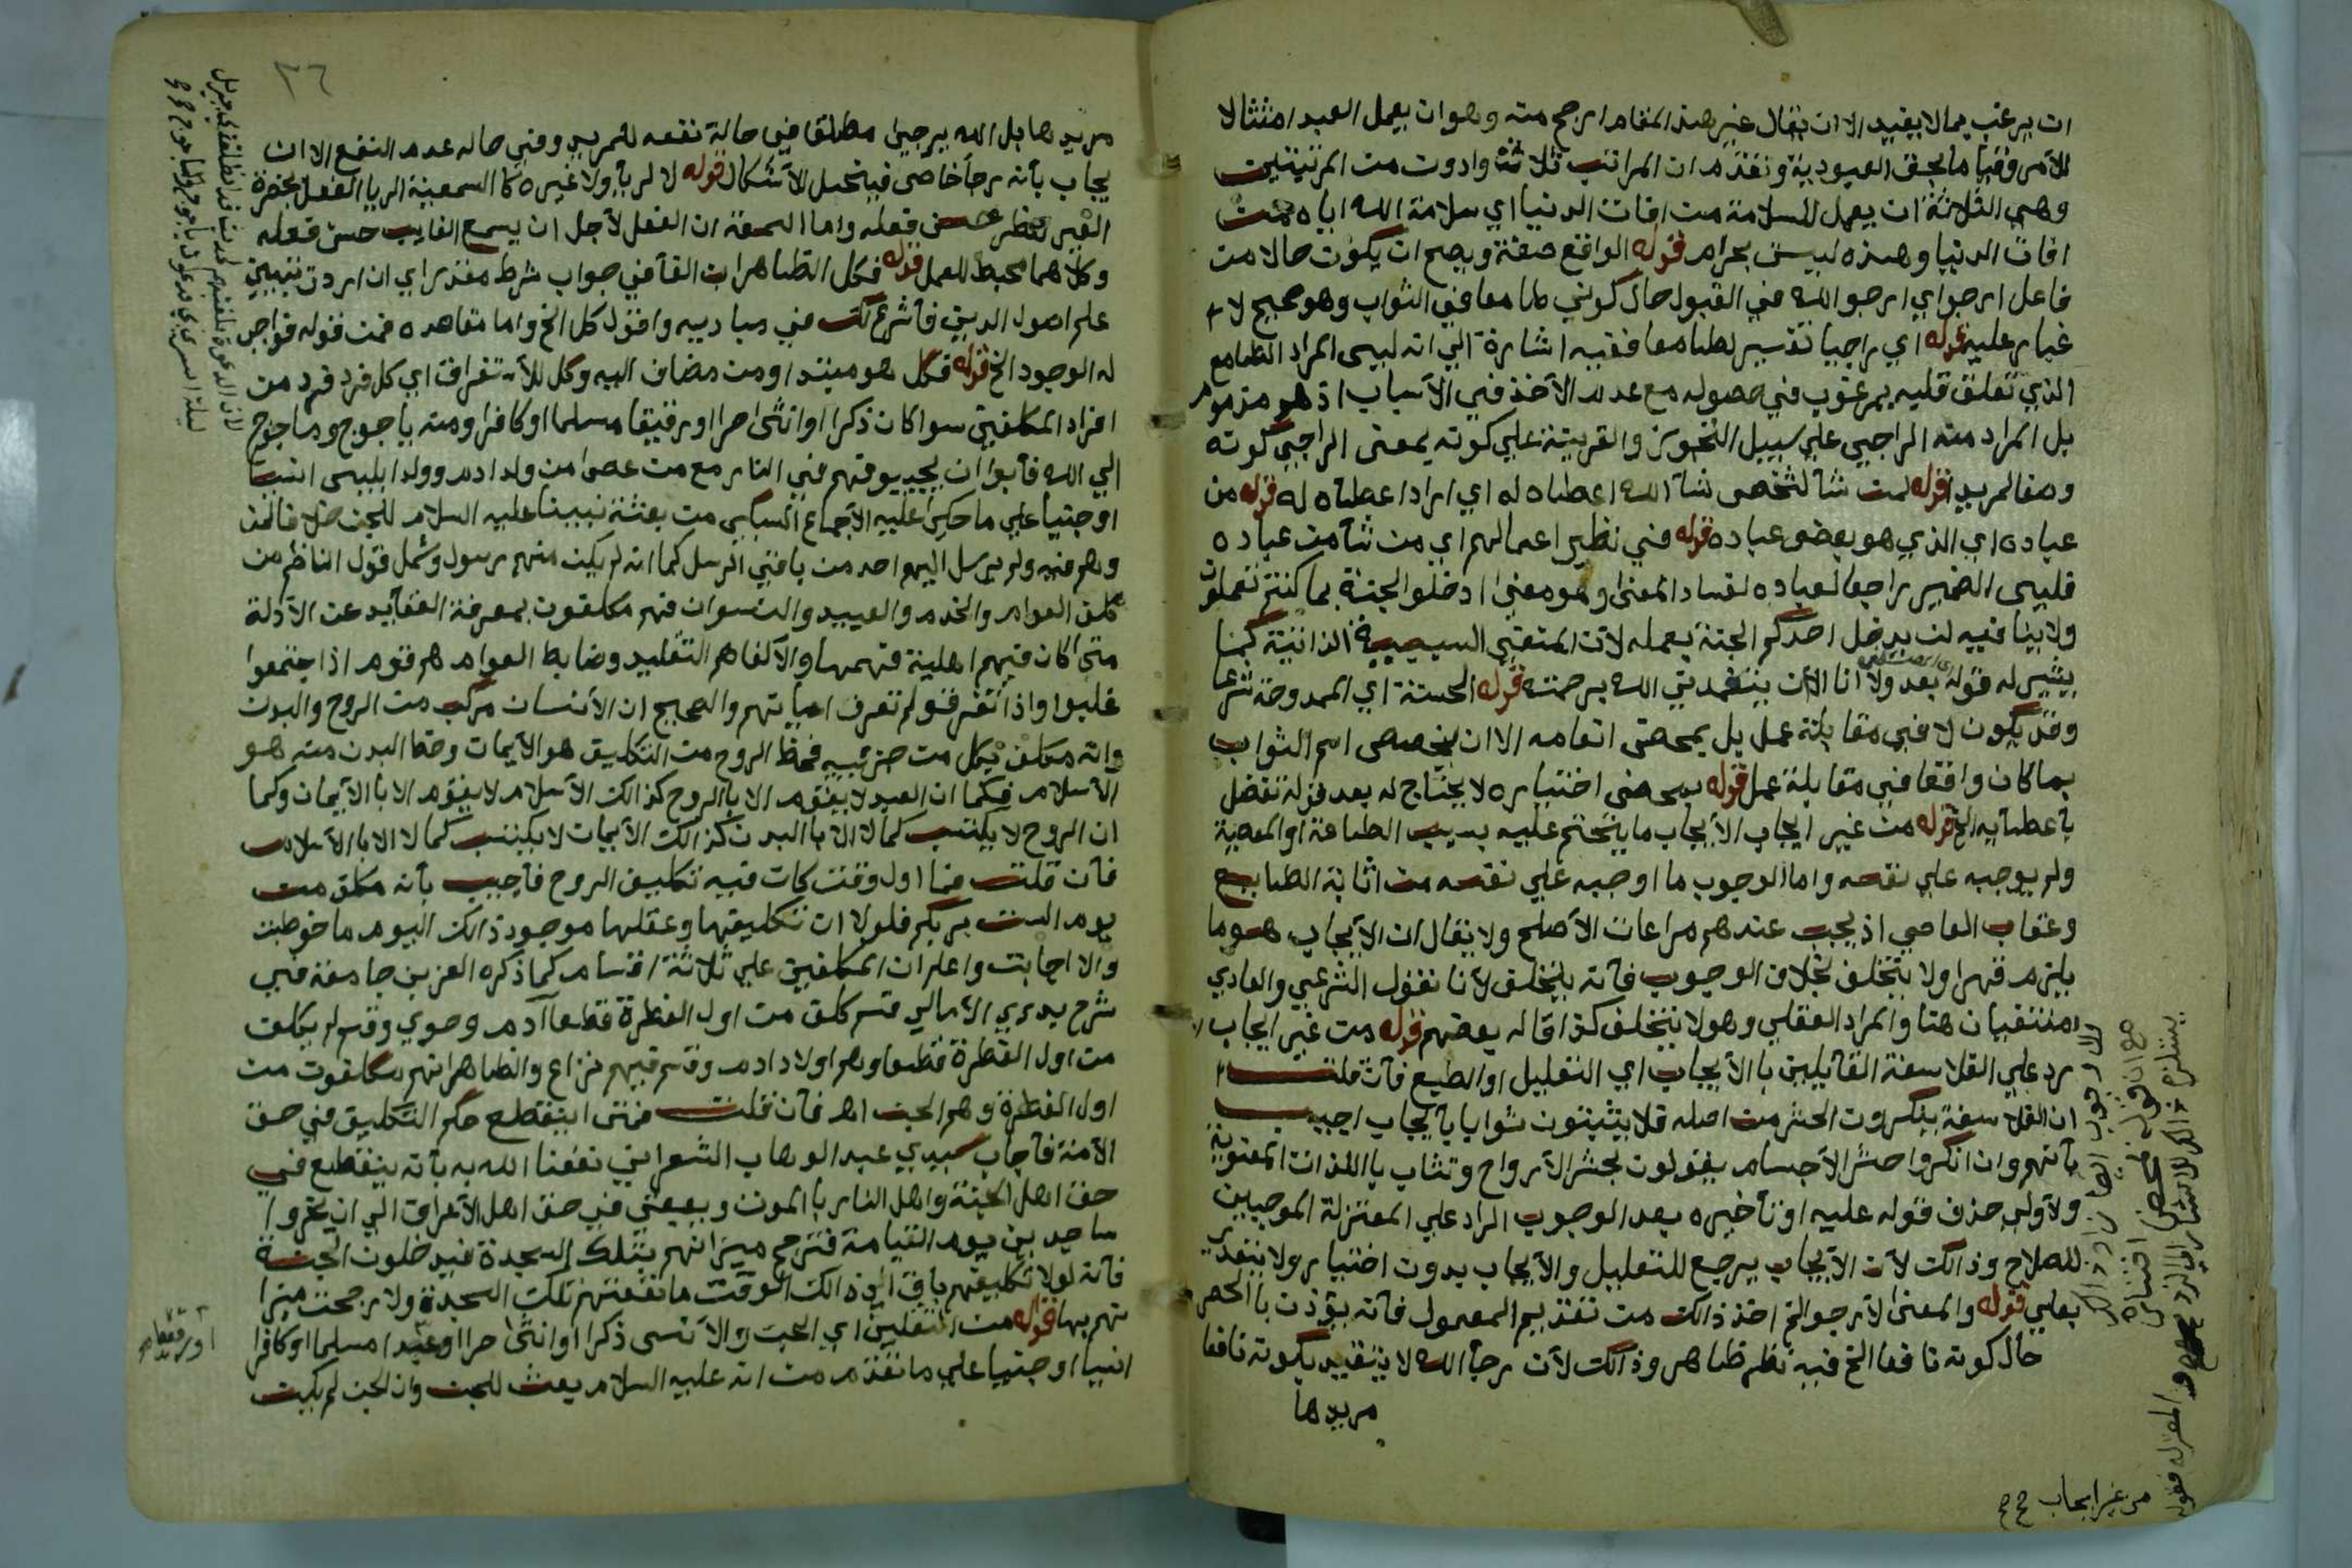 ان يرغب بما لا يفيد الا ان يقال غير هذا المقام ارجح منه وهو ان يعمل العبد امتثالا
للأمر وقيا ما بحق العبودية وتقدم ان المراتب ثلاثة وادون من المرتبتين
وهي الثلاثة ان يعمل للسلامة من افات الدنيا اي سلامة الله اياه من
افات الدنيا وهذه ليس بحرام قوله الواقع صفة ويصح ان يكون حالا من
فاعل ارجو اي ارجو الله في القبول حال كوني طامعا في الثواب وهو صحيح لا
غبار عليه قوله اي راجيا تفسير لطامعا ففيه اشارة الي انه ليس المراد الطامع
الذي تعلق قلبه بمرغوب في حصوله مع عدم الأخذ في الأسباب اذ هو مذموم
بل المراد منه الراجي علي سبيل التجوز والقرينة علي كونه بمعنى الراجي كونه
وصفا لمريد قوله لمن شأ لشخص شأ الله اعطاه له اي اراد اعطاه له قوله من
عباده اي الذي هو بعض عباده قوله في نظير اعمالهم اي من شأ من عباده
فليس الضمير راجعا لعباده لفساد المعنى وهو معنى ادخلوا الجنة بما كنتم تعملون
ولا ينا فيه لن يدخل احدكم الجنة بعمله لان المنفي السببية الذاتية كما
يشير له قوله بعد ولا انا الا ان يتغمدني الله برحمته قوله الحسنة اي الممدوحة شرعا
وقد يكون لا في مقابلة عمل بل بمحض انعامه الا ان يخصص اسم الثواب
بما كان واقعا في مقابلة عمل قوله بمحض اختياره لا يحتاج له بعد قوله تفضل
بأعطايه الخ قوله من غير ايجاب الأيجاب ما يتحتم عليه بسبب الطاعة او المعصية
ولم يوجبه علي نفسه واما الوجوب ما اوجبه علي نفسه من اثابة الطايع
وعقاب العاصي اذ يجب عندهم مراعات الأصلح ولا يقال ان الأيجاب هو ما
يلزم قهرا ولا يتخلف بخلاف الوجوب فأنه يتخلف لأنا نقول الشرعي والعادي
منتفيان هنا والمراد العقلي وهو لا يتخلف كذا قاله بعضهم قوله من غير ايجاب
رد علي الفلاسفة القائلين با الأيجاب اي التعليل او الطبع فأن قلت
ان الفلاسفة ينكرون الحشر من اصله فلا يثبتون ثوابا بأيجاب اجيب
بأنهم وان انكروا حشر الأجسام يقولون بحشر الأرواح وتثاب با اللذات المعنوية
ولأولي حذف قوله عليه او تأخيره بعد الوجوب الراد علي المعتزلة الموجبين
للصلاح وذالك لأن الأيجاب يرجع للتعليل والأيجاب بدون اختيار ولا يتعدى
بعلي قوله والمعنى لأرجو الخ اخذ ذالك من تقديم المعمول فأنه يؤذن با الحصر
حال كونه نافعا الخ فيه نظر ظاهر وذالك لأن رجأ الله لا يتقيد بكونه نافعا
مريدها
من غير ايجاب صح
٣٦
مريدها بل الله يرجي مطلقا في حالة نفعه للمريد وفي حاله عدم النفع الا ان
يجاب بأنه رجأ خاص فينحل الأشكال قوله لا لريأ ولا غيره كا السمعة الريا الفعل بحضرة
الغير لينظر حسن فعله واما السمعة ان الفعل لأجل ان يسمع الغايب حسن فعله
وكلاهما محبط للعمل قوله فكل الظاهر ان الفأ في جواب شرط مقدر اي ان اردت تبيين
علم اصول الدين فأشرع لك في مباديه واقول كل الخ واما مقاصده فمن قوله فواجب
له الوجود الخ قوله فكل هو مبتدا ومن مضاف اليه وكل للأستغراق اي كل فرد فرد من
افراد المكلفين سوا كان ذكرا او انثى حرا او رقيقا مسلما او كافرا ومنه ياجوج وماجوج
الي الله فأبوا ان يجيبوا فهم في النار مع من عصى من ولد ادم وولد ابليس انسيا
او جنيا علي ما حكي عليه الأجماع السبكي من بعثة نبينا عليه السلام للجن خلافا لمن
وهم فيه ولم يرسل اليهم احد من باقي الرسل كما انه لم يكن منهم رسول وشمل قول الناظم من
كلف العوام والخدم والعبيد والنسوان فهم مكلفون بمعرفة العقايد عن الأدلة
متى كان فيهم اهلية فهمها والا كفاهم التقليد وضابط العوام هم قوم اذا اجتمعوا
غلبوا واذا تفرقوا لم تعرف اعيانهم والصحيح ان الأنسان مركب من الروح والبدن
وانه مكلف بكل من جزئيه فحظ الروح من التكليف هو الأيمان وحظ البدن منه هو
الأسلام فكما ان العبد لا يقوم الا بالروح كذالك الأسلام لا يقوم الا با الأيمان وكما
ان الروح لا يكتسب كمالا الا با البدن كذالك الأيمان لا يكتسب كمالا الا با الأسلام
فأن قلت فما اول وقت كان فيه تكليف الروح فأجيب بأنه مكلف من
يوم الست بربكم فلولا ان تكليفها وعقلها موجود ذالك اليوم ما خوطبت
ولا اجابت واعلم ان المكلفين علي ثلاثة اقسام كما ذكره العز بن جامعة في
شرح بدء الأمالي قسم كلف من اول الفطرة قطعا آدم وحوي وقسم لم يكلف
من اول الفطرة قطعا وهم اولاد ادم وقسم فيهم نزاع والظاهر انهم مكلفون من
اول الفطرة وهم الجن اهـ فأن قلت فمتى ينقطع حكم التكليف في حق
الأمة فأجاب سيدي عبد الوهاب الشعراني نفعنا الله به بأنه ينقطع في
حق اهل الجنة واهل النار با الموت وبقي في حق اهل الأعراف الي ان يخروا
ساجدين يوم القيامة فترجح ميزانهم بتلك السجدة فيدخلون الجنة
فأنه لولا تكليفهم باق الي ذالك الوقت ما نفعتهم تلك السجدة ولا رجحت ميزا
نهم بها قوله من الثقلين اي الجن والأنس ذكرا او انثى حرا او عبدا مسلما او كافرا
انسيا او جنيا علي ما تقدم من انه عليه السلام بعث للجن وان الجن لم يكن
او رقيقا